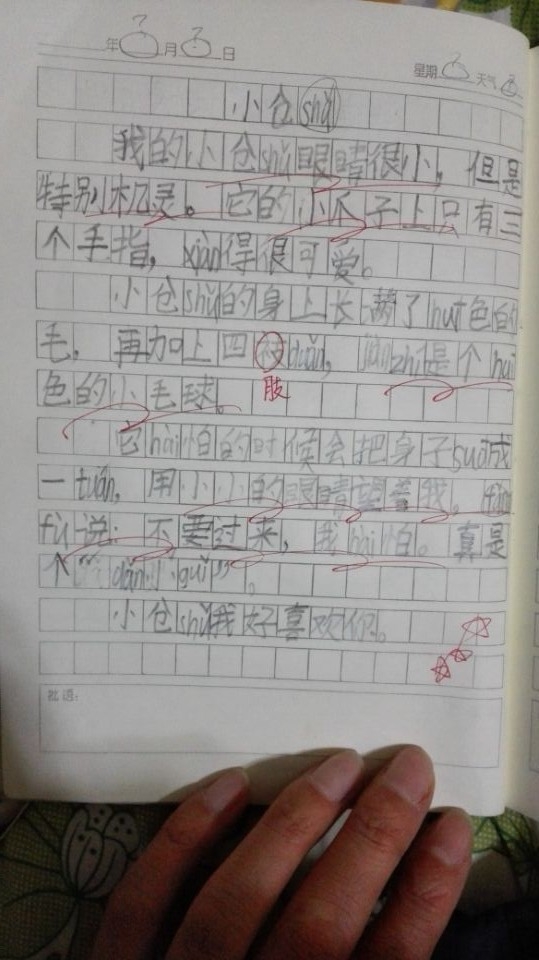 年 月 日
星期 天气
小仓shǔ
我的小仓shǔ眼睛很小,但是
特别机灵。它的小爪子上只有三
个手指,xiǎn得很可爱。
小仓shǔ的身上长满了huī色的
毛,再加上四duǎn,jiǎnzhí是个huī
肢
色的小毛球。
它hài怕的时候会把身子suō成
一tuán,用小小的眼睛望着我,fǎng
fú说:不要过来,我hài怕。真是
个“dǎn小guǐ”。
小仓shǔ我好喜欢你。
批语: